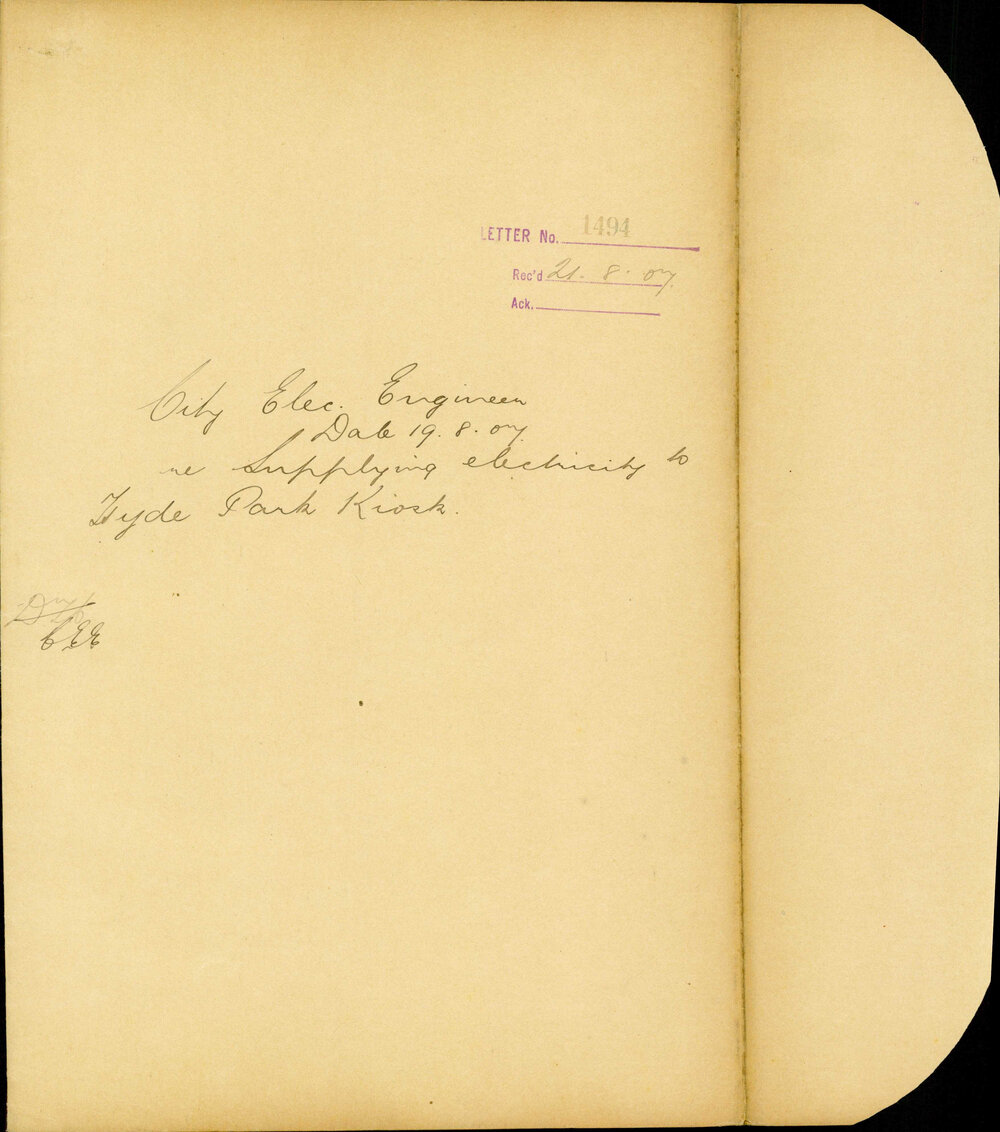 LETTER No. 1494
Rec'd 21. 8. 07.
Ack.
City Elec. Engineer
Date 19. 8. 07
re Supplying electricity to
Hyde Park Kiosk.
CEE